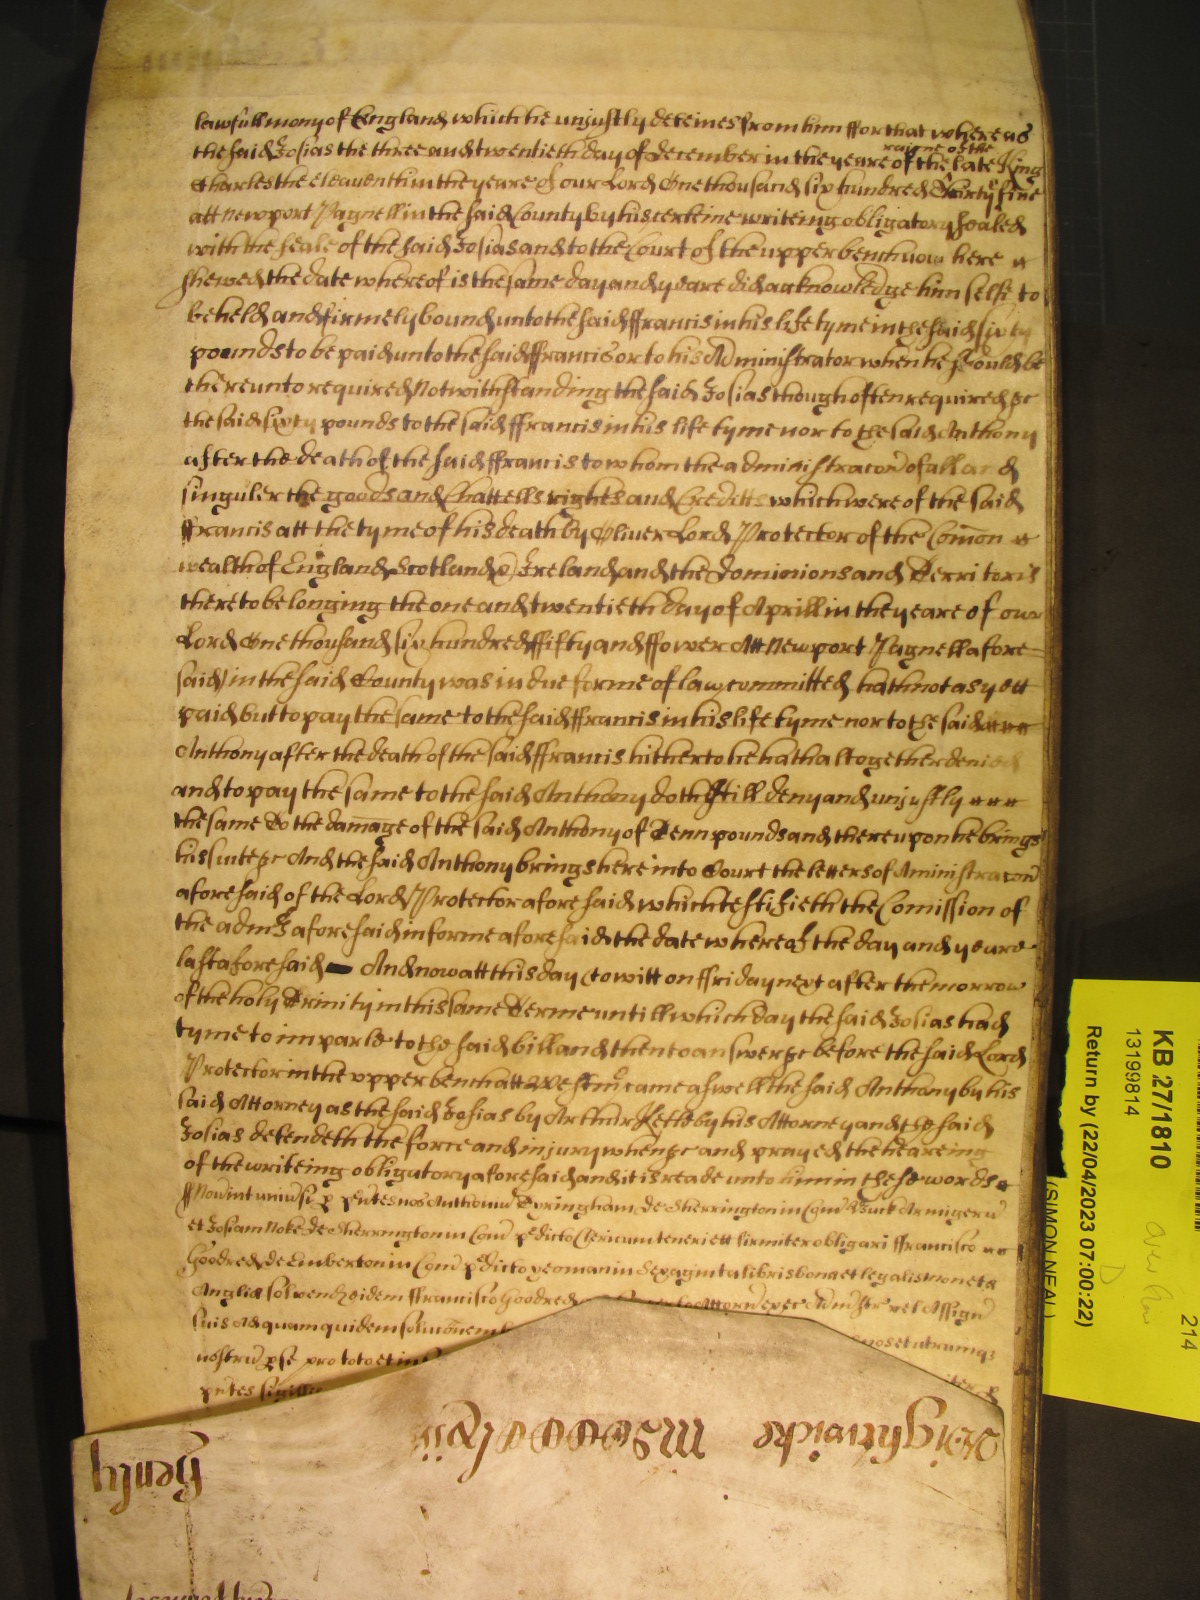 lawfull mony of England which he unjustly deteines from him ffor that whereas
raigne of the
the said Josias the three and twentieth day of december in the yeare of the late King
Charles the eleaventh in the yeare of our Lord One thousand six hundred Thirty five
att Newport Pagnell in the said County by his certeine writeing obligatory sealed
with the seale of the said Josias and to the Court of the upper bench now here
shewed the date whereof is the same day and yeare did acknowledge him selfe to
be held and firmely bound unto the said ffrancis in his life tyme in the said sixty
pounds to be paid unto the said ffrancis or to his Administrator when he should be
thereunto required Notwithstanding the said Josias though often required &c
the said sixty pounds to the said ffrancis in his life tyme nor to the said Anthony
after the death of the said ffrancis to whom the administracon of all and
singuler the goods and Chattells rights and Creditts which were of the said
ffrancis att the tyme of his death by Oliver Lord Protector of the Comon
wealth of England Scotland & Ireland and the Dominions and Territoris
thereto belonging the one and twentieth day of Aprill in the yeare of our
Lord One thousand six hundred ffifty and ffower Att Newport Pagnell afore
said in the said County was in due forme of law committed hath not as yett
paid but to pay the same to the said ffrancis in his life tyme nor to the said
Anthony after the death of the said ffrancis hitherto he hath altogether denied
and to pay the same to the said Anthony doth still deny and unjustly
the same To the damage of the said Anthony of Tenn pounds and thereupon he brings
his suite &c And the said Anthony brings here into Court the letters of Aministracon
aforesaid of the Lord Protector aforesaid which testifieth the Comission of
the adm aforesaid in forme aforesaid the date whereof the day and yeare
last aforesaid And now att this day to witt on ffriday next after the morrow
of the holy Trinity in this same Terme untill which day the said Josias had
tyme to imparle to the said bill and then to answer &c before the said Lord
Protector in the upper bench att Westm came aswell the said Anthony by his
said Attorney as the said Josias by Arthur Ketleby his Attorney and the said
Josias defendeth the force and injury when &c and prayed the heareing
of the writeing obligatory aforesaid and it is reade unto him in these words
Noverint universi p pntes nos Anthoniu Tyringham de Sherrington in Com Buck Armigeru
et Josiam Noke de Sherrington in Com pdicto Clericum teneri et firmiter obligari ffrancisco
Goodred de Emberton in Com pdicto yeoman in Sexaginta libris bonae et legalis monete
Anglie solvend eidem ffrancisco Goodred Attorn exec Admstr vel Assign
suis Ad quam quidem soluconem nos et utrumq
nostru p se pro toto et in
pntes sigill
Wightwicke MDCCCClxij
Henly
KB 27/1810
13199814
Return by (22/04/2023 07:00:22)
(SIMON NEAL)
214
D